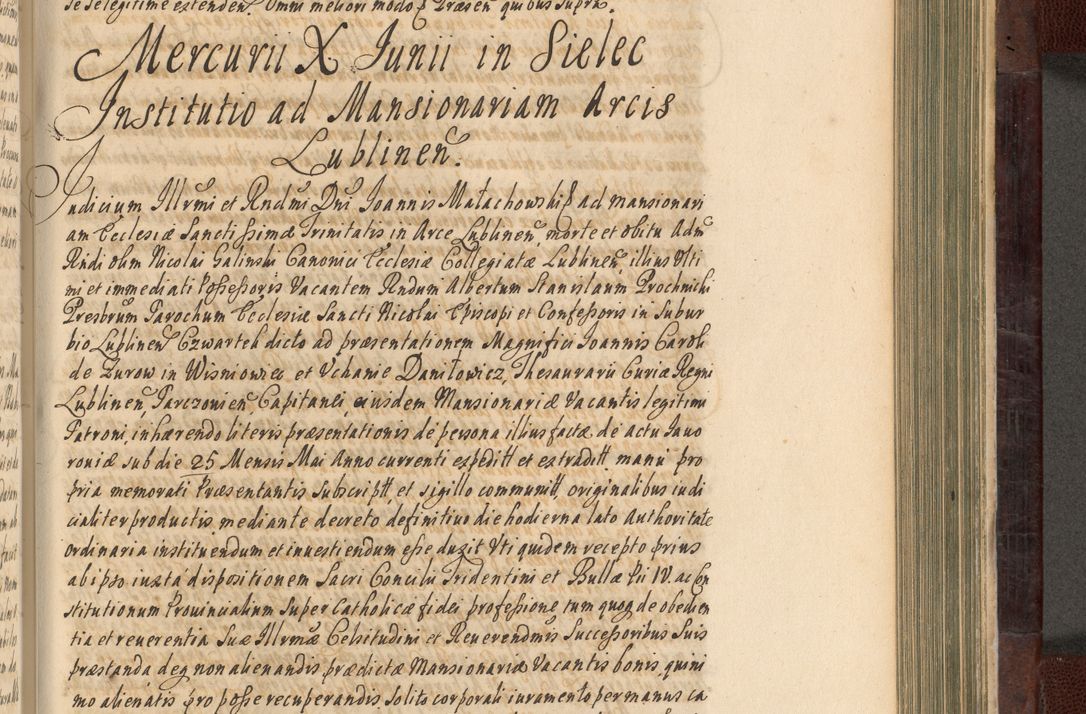 se se legitime extenden. Omni meliori modo Præsen quibus supra.
Mercurii X Junii in Sielec
Institutio ad Mansionariam Arcis
Lublinen.
Judicium Illrmi et Rndmi Dni Joannis Małachowski ad mansionari
am Ecclesiæ Sanctissimæ Trinitatis in Arce Lublinen, morte et obitu Adm
Rndi olim Nicolai Galinski Canonici Ecclesiæ Collegiatæ Lublinen, illius Vlti
mi et immediati Possessoris Vacantem Rndum Albertum Stanislaum Prochnicki
Presbrum Parochum Ecclesiæ Sancti Nicolai Episcopi et Confessoris in Subur
bio Lublinen Czwartek dicto ad præsentationem Magnifici Joannis Caroli
de Zurow in Wisniowiec et Vchanie Daniłowicz, Thesaurarii Curiæ Regni
Lublinen, Parczovien Capitanei, eiusdem Mansionariæ Vacantis legitimi
Patroni, inhærendo literis præsentationis de persona illius factæ, de actu Javo
roviæ sub die 25 Mensis Mai Anno currenti expeditt et extraditt, manu pro
pria memorati Præsentantis subscriptt, et sigillo communitt, originalibus iudi
cialiter productis, mediante decreto definitivo die hodierna lato Authoritate
ordinaria instituendum et investiendum esse duxit Vti quidem recepto prius
ab ipso iuxta dispositionem Sacri Concilii Tridentini et Bullæ Pii IV. ac Con
stitutionum Provincialium super Catholicæ fidei professione tum quoq de obedien
tia et reverentia Suæ Illrmæ Celsitudini et Reverendmis Successoribus Suis
præstanda deq non alienandis prædictæ Mansionariæ Vacantis bonis, quini
mo alienatis pro posse recuperandis solito corporali iuramento per manus ca